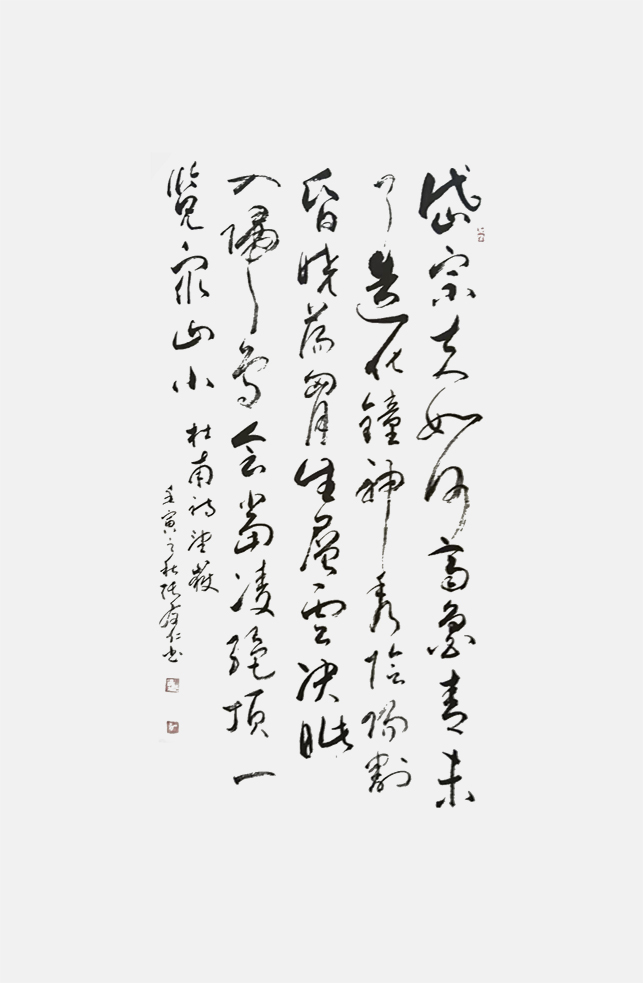 岱宗夫如何齊魯青未
了造化鐘神秀陰陽割
昏曉蕩胸生層雲決眥
入歸鳥會當凌絕頂一
覽眾山小 杜甫詩望嶽
壬寅之秋張仁書